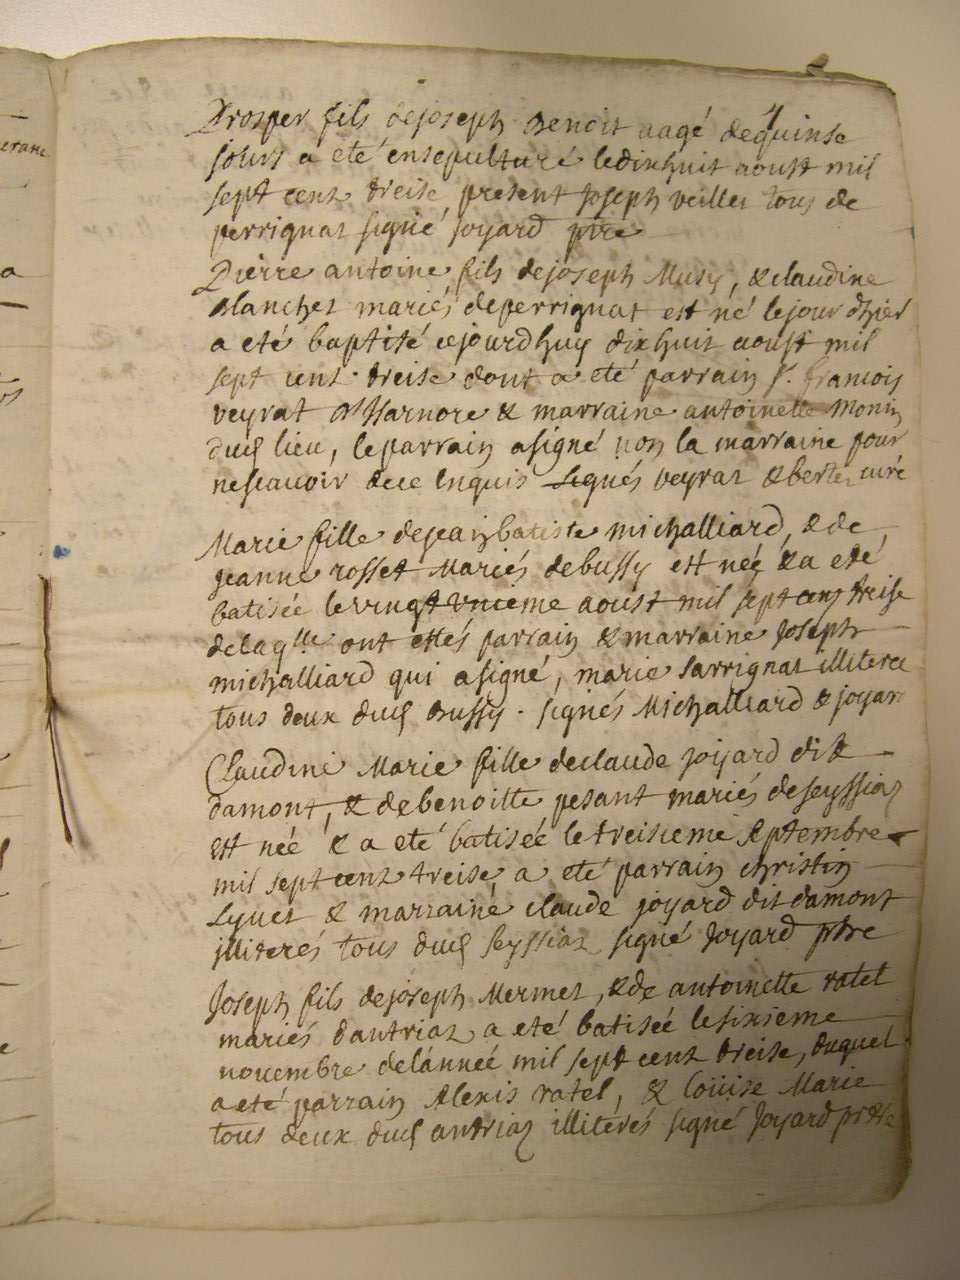 Prosper fils de joseph Benoit aagé de quinse
jours a eté ensepulturé le dixhuit aoust mil
sept cent treise, present Joseph veillet tous de
perrignat signé Joyard ptre
Pierre antoine, fils de joseph Musy, & claudine
Blanchet mariés de perrignat est né le jour d'hier
a eté baptisé cejourdhuy dixhuit aoust mil
sept cent treise dont a eté parrain Sr. francois
veyrat & marraine antoinette Monin
dud lieu, le parrain a signé non la marraine pour
ne scavoir de ce Enquis signés veyrat & curé
Marie fille de jean batiste michalliard, & de
jeanne rosset Mariés de bussy est née & a eté
batisée le vingt unieme aoust mil sept cens treise
de laqlle ont ettés parrain & marraine Joseph
michalliard qui a signé, marie sarrignat
tous deux dud Bussy. signés Michalliard & joyard
Claudine Marie fille de claude joyard dit
damont, & de benoitte pesant mariés de seyssiat
est née & a eté batisée le treisieme septembre
mil sept cent treise, a eté parrain christin
Lyvet & marraine claude joyard dit damont
illiterés tous dud seyssiat signé Joyard ptre
Joseph fils de joseph Mermet, & de antoinette ratel
mariés dautriat a eté batisée le sixieme
novembre de lánneé mil sept cent treise, duquel
a eté parrain Alexis ratel, & Loüise Marie
tous deux dud autriat illiterés signé Joyard ptre